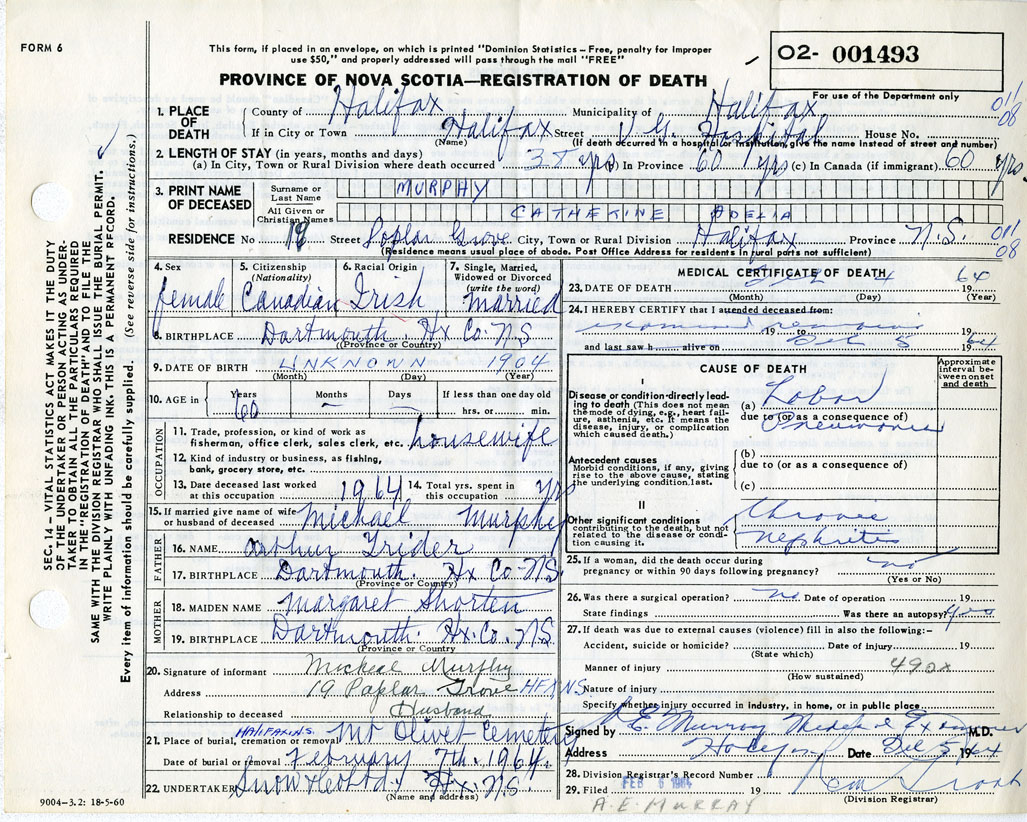 FORM 6
This form, if placed in an envelope, on which is printed "Dominion Statistics – Free, penalty for improper
use $50," and properly addressed will pass through the mail "FREE"
PROVINCE OF NOVA SCOTIA—REGISTRATION OF DEATH
O2- 001493
For use of the Department only
011
08
SEC. 14 – VITAL STATISTICS ACT MAKES IT THE DUTY
OF THE UNDERTAKER OR PERSON ACTING AS UNDER-
TAKER TO OBTAIN ALL THE PARTICULARS REQUIRED
IN THE "REGISTRATION OF DEATH" AND TO FILE THE
SAME WITH THE DIVISION REGISTRAR WHO SHALL ISSUE THE BURIAL PERMIT.
WRITE PLAINLY WITH UNFADING INK. THIS IS A PERMANENT RECORD.
Every item of information should be carefully supplied. (See reverse side for instructions.)
1. PLACE OF DEATH
County of Halifax Municipality of Halifax
If in City or Town Halifax Street V.G. Hospital House No.
(Name) (If death occurred in a hospital or institution, give the name instead of street and number)
2. LENGTH OF STAY (in years, months and days)
(a) In City, Town or Rural Division where death occurred yrs (b) In Province 60 yrs (c) In Canada (if immigrant) 60 yrs.
3. PRINT NAME OF DECEASED
Surname or Last Name MURPHY
All Given or Christian Names CATHERINE ADELIA
RESIDENCE No 19 Street Poplar Grove City, Town or Rural Division Halifax Province N.S. 011
08
(Residence means usual place of abode. Post Office Address for residents in rural parts not sufficient)
4. Sex
female
5. Citizenship
(Nationality)
Canadian
6. Racial Origin
Irish
7. Single, Married,
Widowed or Divorced
(write the word)
married
8. BIRTHPLACE Dartmouth Hx Co NS
(Province or Country)
9. DATE OF BIRTH UNKNOWN 1904
(Month) (Day) (Year)
10. AGE in Years Months Days If less than one day old
60 – – hrs. or min.
OCCUPATION
11. Trade, profession, or kind of work as
fisherman, office clerk, sales clerk, etc. housewife
12. Kind of industry or business, as fishing,
bank, grocery store, etc.
13. Date deceased last worked
at this occupation 1964
14. Total yrs. spent in
this occupation yrs
15. If married give name of wife
or husband of deceased Michael Murphy
FATHER
16. NAME Arthur Trider
17. BIRTHPLACE Dartmouth. Hx Co. N.S.
(Province or Country)
MOTHER
18. MAIDEN NAME Margaret Shorten
19. BIRTHPLACE Dartmouth. Hx. Co. N.S.
(Province or Country)
20. Signature of informant Micheal Murphy
Address 19 Paplar Grove HFX NS
Relationship to deceased Husband
HALIFAX N.S.
21. Place of burial, cremation or removal Mt Olivet Cemetery
Date of burial or removal February 7th. 1964.
22. UNDERTAKER Snow & Co Ltd Hx. N.S.
(Name and address)
9004–3.2: 18-5-60
MEDICAL CERTIFICATE OF DEATH
23. DATE OF DEATH Feb 4 1964
(Month) (Day) (Year)
24. I HEREBY CERTIFY that I attended deceased from:
examined remains
19 to Feb 5 1964
and last saw h alive on 19
CAUSE OF DEATH
Approximate
interval be-
tween onset
and death
I
Disease or condition directly lead-
ing to death (This does not mean
the mode of dying, e.g., heart fail-
ure, asthenia, etc. It means the
disease, injury, or complication
which caused death.)
(a) Lobar
due to (or as a consequence of)
Pneumonia
Antecedent causes
Morbid conditions, if any, giving
rise to the above cause, stating
the underlying condition, last.
(b)
due to (or as a consequence of)
(c)
II
Other significant conditions
contributing to the death, but not
related to the disease or condi-
tion causing it.
Chronic
Nephritis
25. If a woman, did the death occur during
pregnancy or within 90 days following pregnancy? no
(Yes or No)
26. Was there a surgical operation? no Date of operation 19
State findings Was there an autopsy? yes
27. If death was due to external causes (violence) fill in also the following:–
Accident, suicide or homicide? Date of injury 19
(State which)
Manner of injury 490x
(How sustained)
Nature of injury
Specify whether injury occurred in industry, in home, or in public place
Signed by A E Murray Medical Examiner M.D.
Address Date 1964
28. Division Registrar's Record Number
29. Filed FEB 6 1964 19
(Division Registrar)
A.E. MURRAY